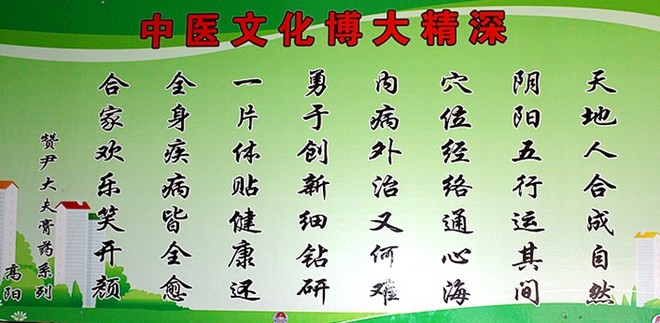 中医文化博大精深
天地人合成自然
阴阳五行运其间
穴位经络通心海
内病外治又何难
勇于创新细钻研
一片体贴健康还
全身疾病皆全愈
合家欢乐笑开颜
赞尹大夫膏药系列
高阳